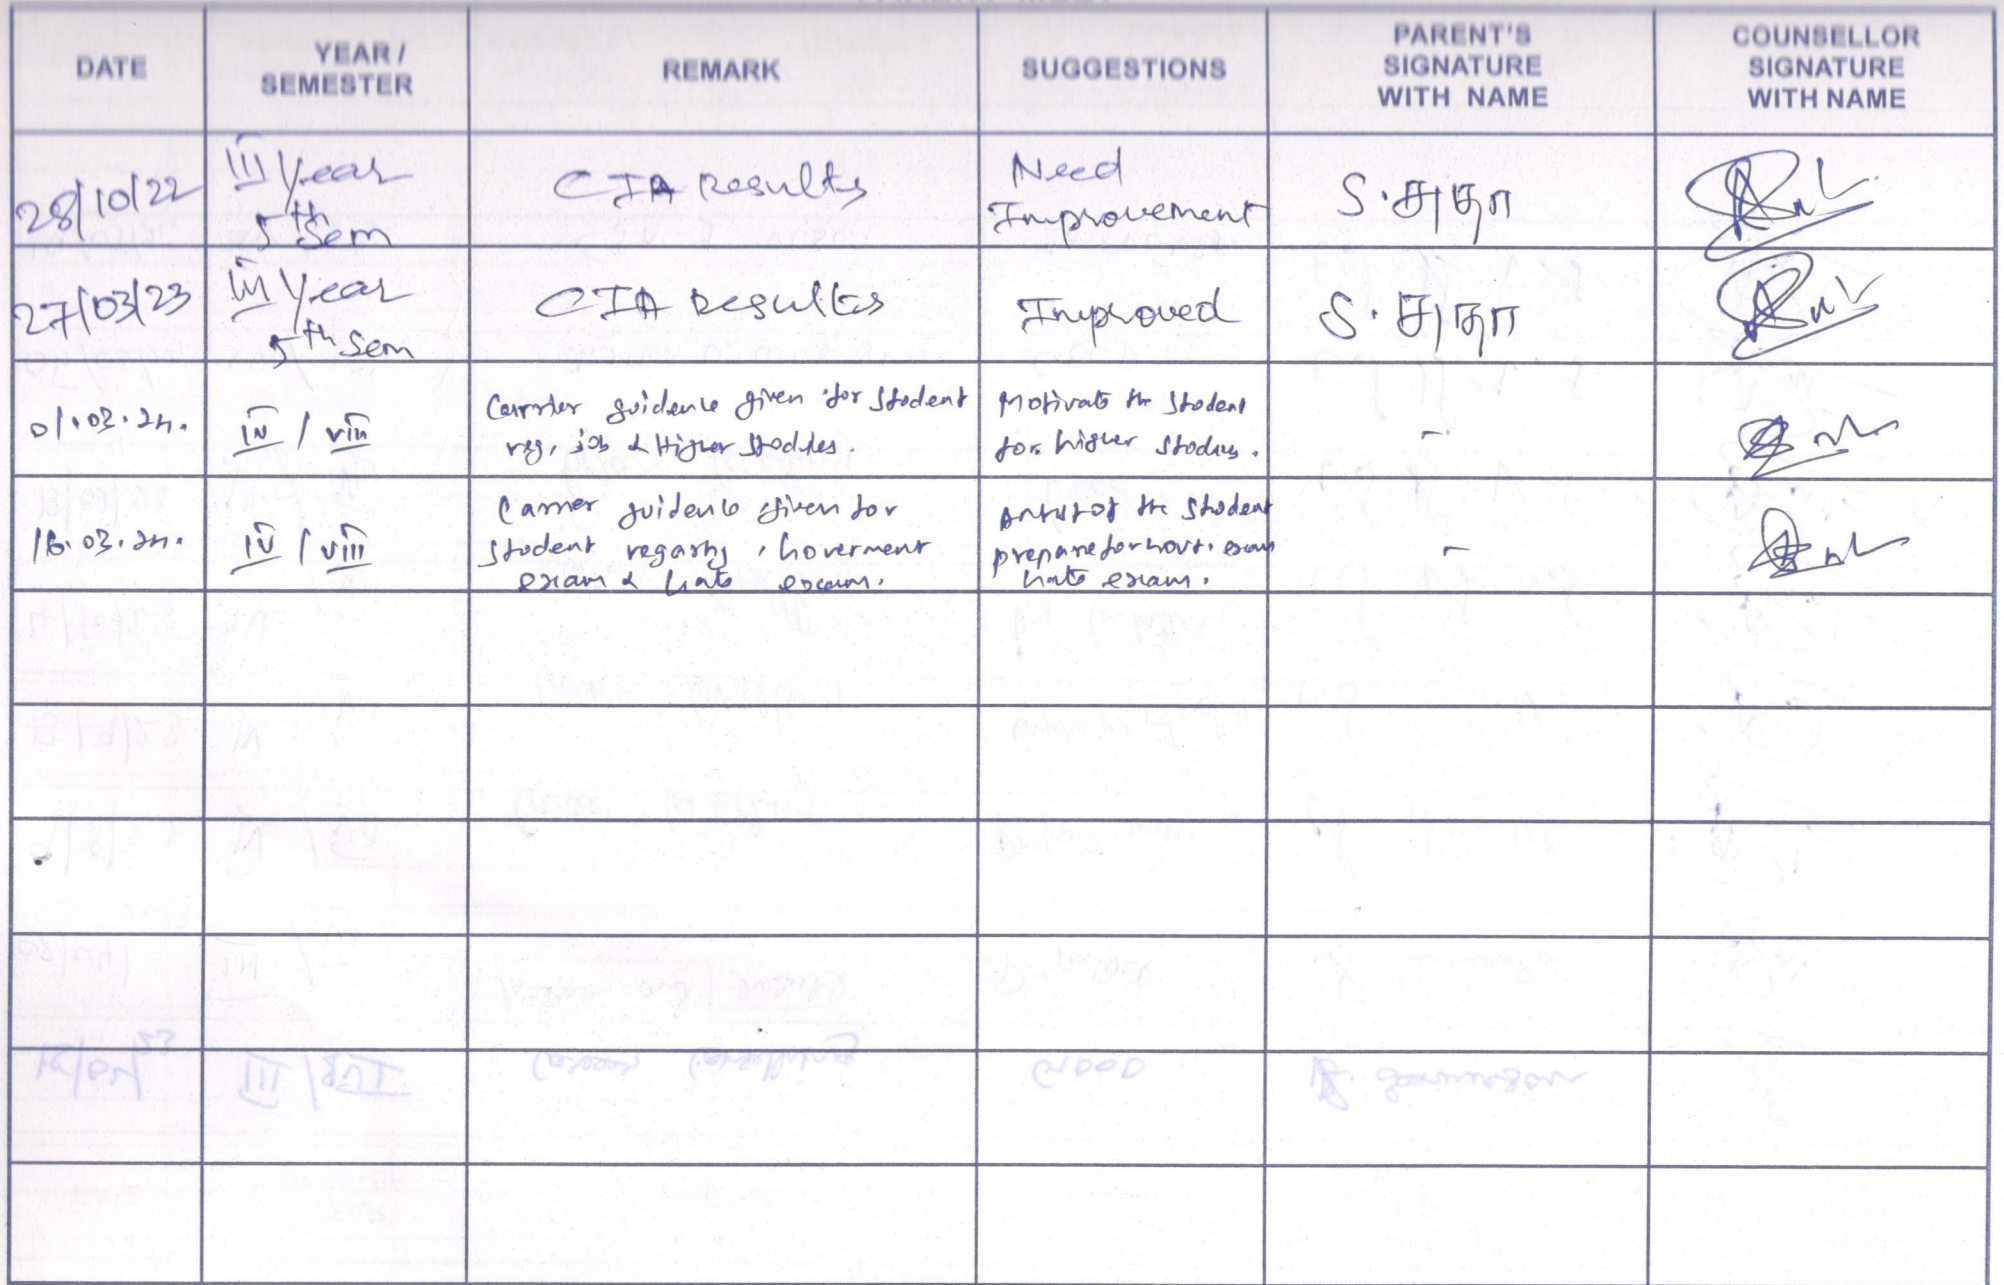 DATE
YEAR /
SEMESTER
REMARK
SUGGESTIONS
PARENT'S
SIGNATURE
WITH NAME
COUNSELLOR
SIGNATURE
WITH NAME
28/10/22
III Year
5th Sem
CIA Results
Need
Improvement
S. சுதா
27/03/23
III Year
5th Sem
CIA Results
Improved
S. சுதா
01.03.24.
IV / VIII
Carrier guidence given for student
reg, job & Higher Studies.
Motivate the student
for higher studies.
-
16.03.24.
IV / VIII
Carrier guidence given for
student regarding,
exam & exam.
the student
prepare for Govt. exam
exam.
-